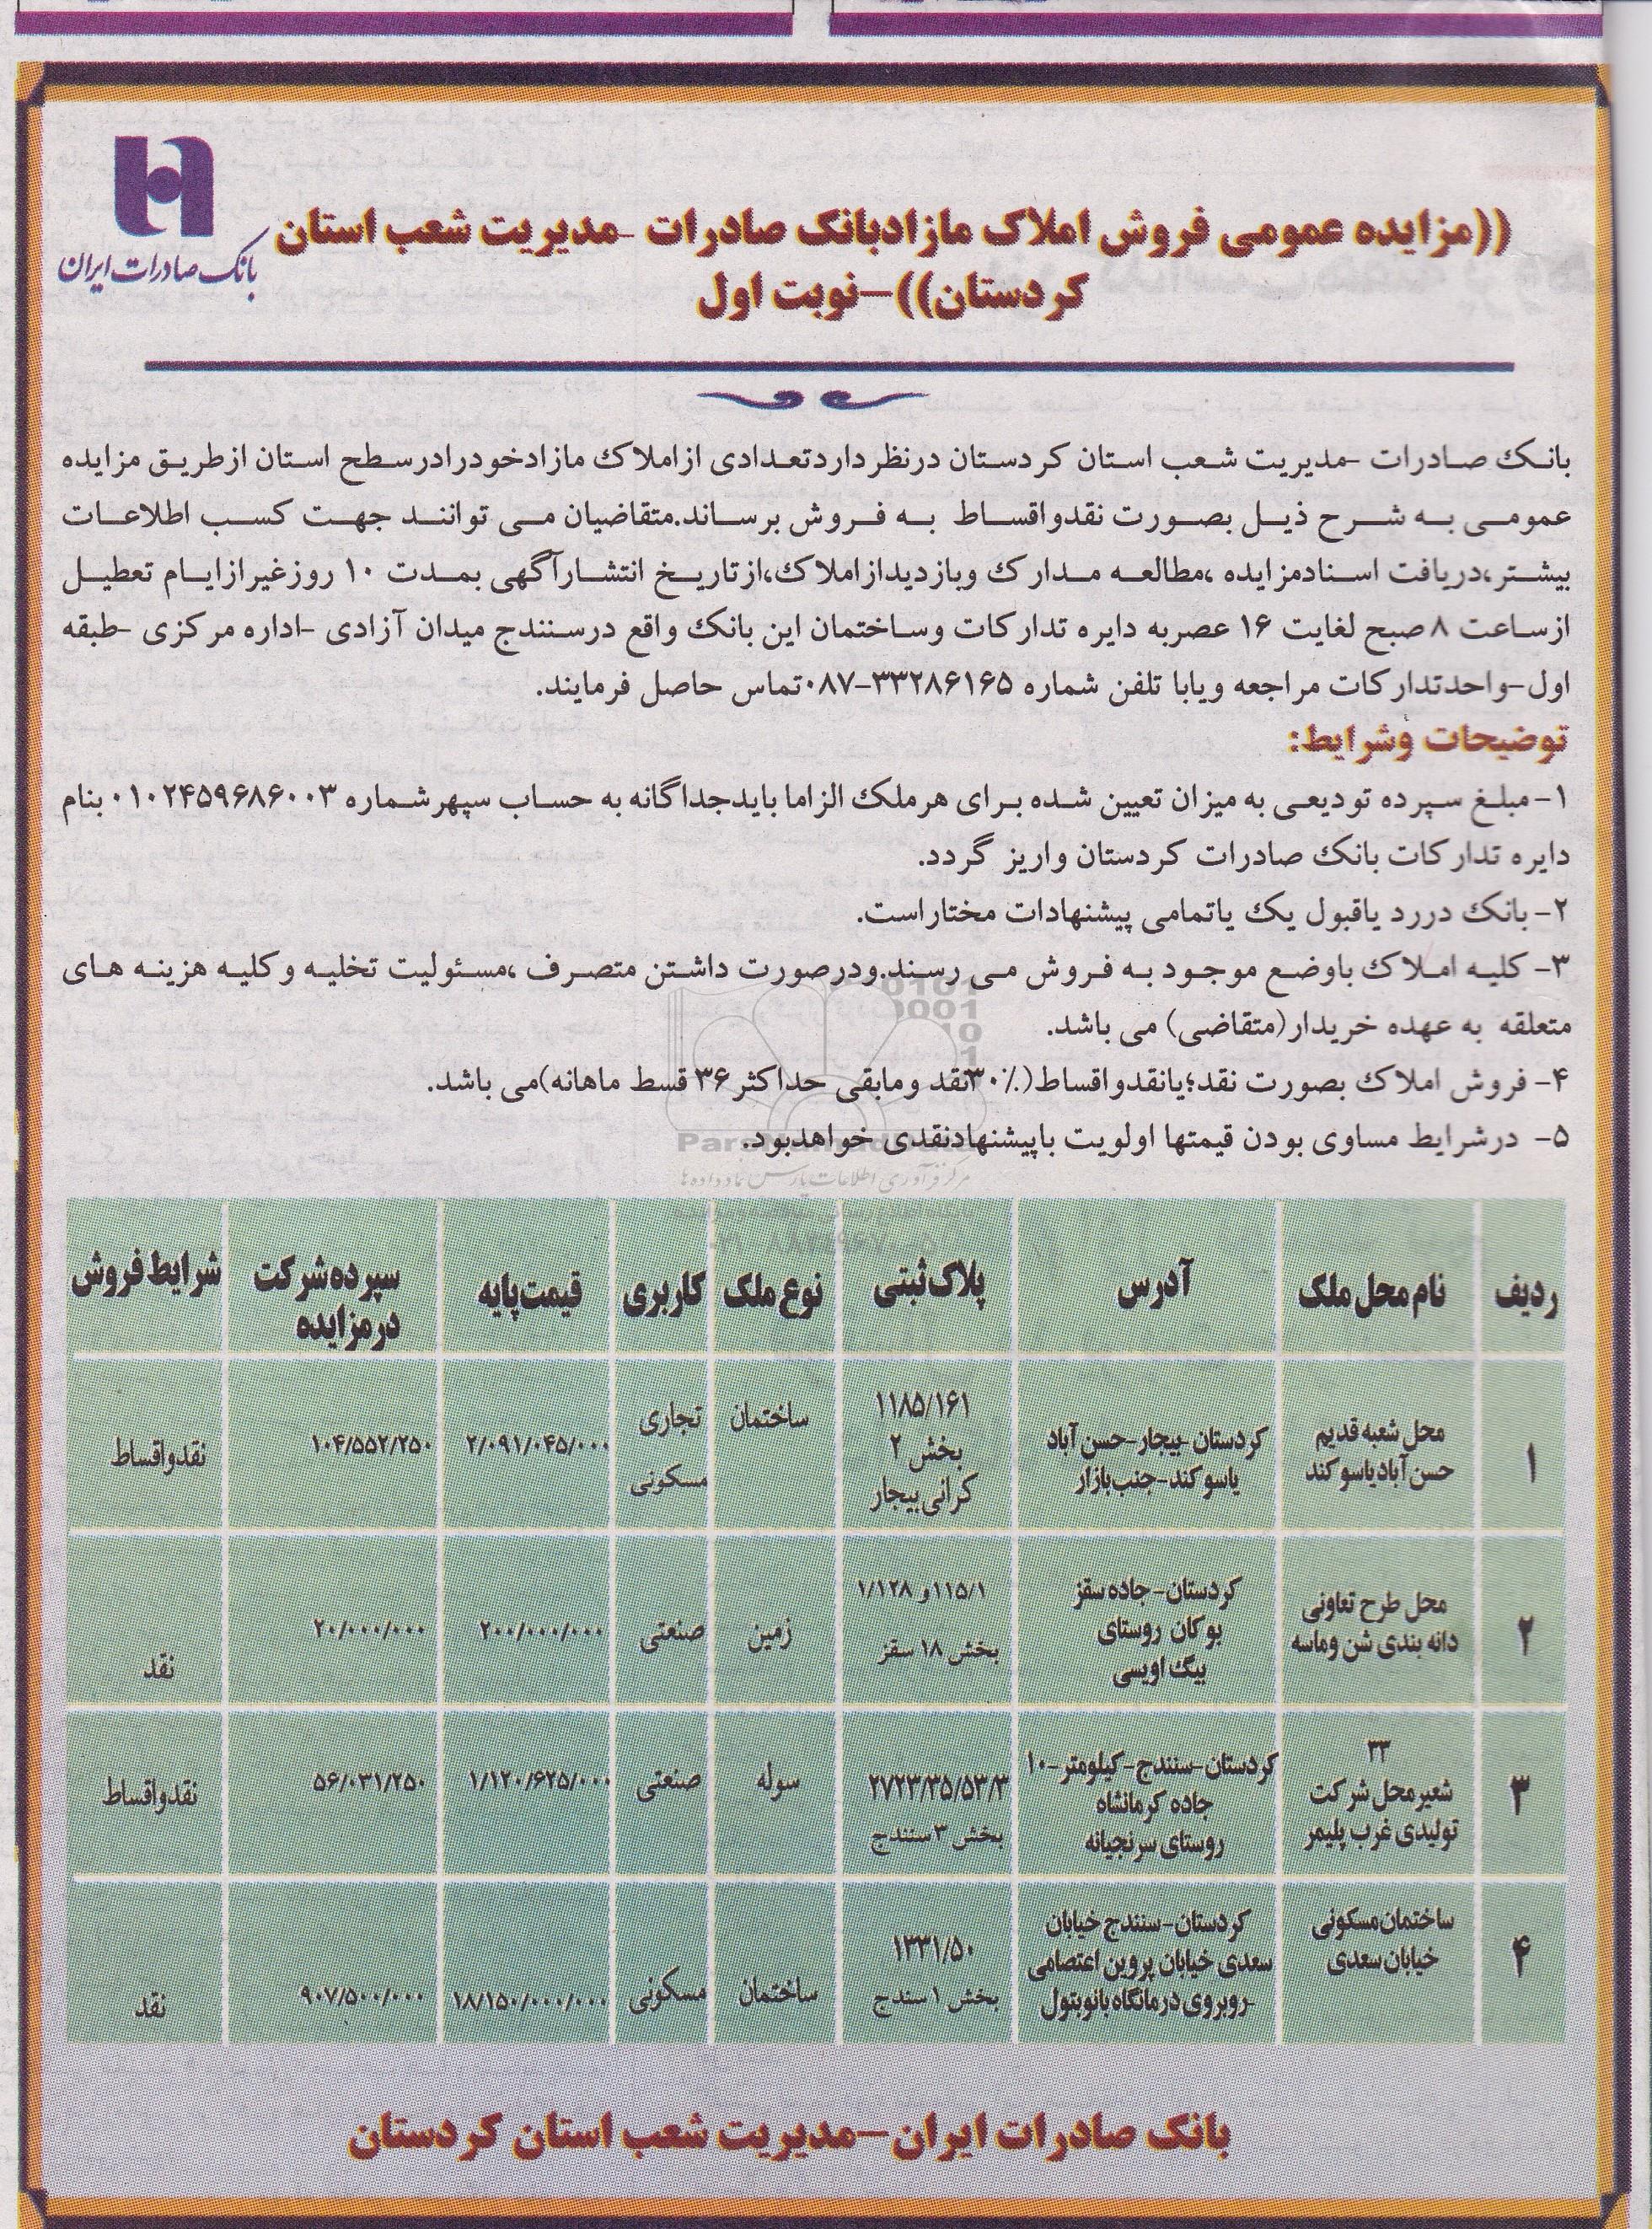 بانک صادرات ایران
((مزایده عمومی فروش املاک مازادبانک صادرات -مدیریت شعب استان
کردستان))-نوبت اول
بانک صادرات -مدیریت شعب استان کردستان درنظرداردتعدادی ازاملاک مازادخودرادرسطح استان ازطریق مزایده
عمومی به شرح ذیل بصورت نقدواقساط به فروش برساند.متقاضیان می توانند جهت کسب اطلاعات
بیشتر،دریافت اسنادمزایده ،مطالعه مدارک وبازدیدازاملاک،ازتاریخ انتشارآگهی بمدت ۱۰ روزغیرازایام تعطیل
ازساعت ۸ صبح لغایت ۱۶ عصربه دایره تدارکات وساختمان این بانک واقع درسنندج میدان آزادی -اداره مرکزی -طبقه
اول-واحدتدارکات مراجعه ویابا تلفن شماره ۳۳۲۸۶۱۶۵-۰۸۷تماس حاصل فرمایند.
توضیحات وشرایط:
۱- مبلغ سپرده تودیعی به میزان تعیین شده برای هرملک الزاما بایدجداگانه به حساب سپهرشماره ۰۱۰۲۴۵۹۶۸۶۰۰۳ بنام
دایره تدارکات بانک صادرات کردستان واریز گردد.
۲- بانک دررد یاقبول یک یاتمامی پیشنهادات مختاراست.
۳- کلیه املاک باوضع موجود به فروش می رسند.ودرصورت داشتن متصرف ،مسئولیت تخلیه وکلیه هزینه های
متعلقه به عهده خریدار(متقاضی) می باشد.
۴- فروش املاک بصورت نقد؛یانقدواقساط(۳۰٪نقد ومابقی حداکثر۳۶ قسط ماهانه)می باشد.
۵- درشرایط مساوی بودن قیمتها اولویت باپیشنهادنقدی خواهدبود.
مرکز فرآوری اطلاعات پارس نماد داده ها
ردیف نام محل ملک آدرس پلاک ثبتی نوع ملک کاربری قیمت پایه سپرده شرکت درمزایده شرایط فروش
۱ محل شعبه قدیم حسن آباد یاسوکند کردستان-بیجار-حسن آباد یاسوکند-جنب بازار ۱۱۸۵/۱۶۱ بخش ۲ کرانی بیجار ساختمان تجاری مسکونی ۲/۰۹۱/۰۴۵/۰۰۰ ۱۰۴/۵۵۲/۲۵۰ نقدواقساط
۲ محل طرح تعاونی دانه بندی شن وماسه کردستان-جاده سقز بوکان روستای بیگ اویسی ۱۱۵/۱و ۱/۱۲۸ بخش ۱۸ سقز زمین صنعتی ۲۰۰/۰۰۰/۰۰۰ ۲۰/۰۰۰/۰۰۰ نقد
۳ ۳۳ شعیرمحل شرکت تولیدی غرب پلیمر کردستان-سنندج-کیلومتر-۱۰ جاده کرمانشاه روستای سرنجیانه ۲۷۲۳/۳۵/۵۳/۳ بخش ۳ سنندج سوله صنعتی ۱/۱۲۰/۶۲۵/۰۰۰ ۵۶/۰۳۱/۲۵۰ نقدواقساط
۴ ساختمان مسکونی خیابان سعدی کردستان-سنندج خیابان سعدی خیابان پروین اعتصامی -روبروی درمانگاه بانوبتول ۱۳۳۱/۵۰ بخش ۱ سندج ساختمان مسکونی ۱۸/۱۵۰/۰۰۰/۰۰۰ ۹۰۷/۵۰۰/۰۰۰ نقد
بانک صادرات ایران-مدیریت شعب استان کردستان